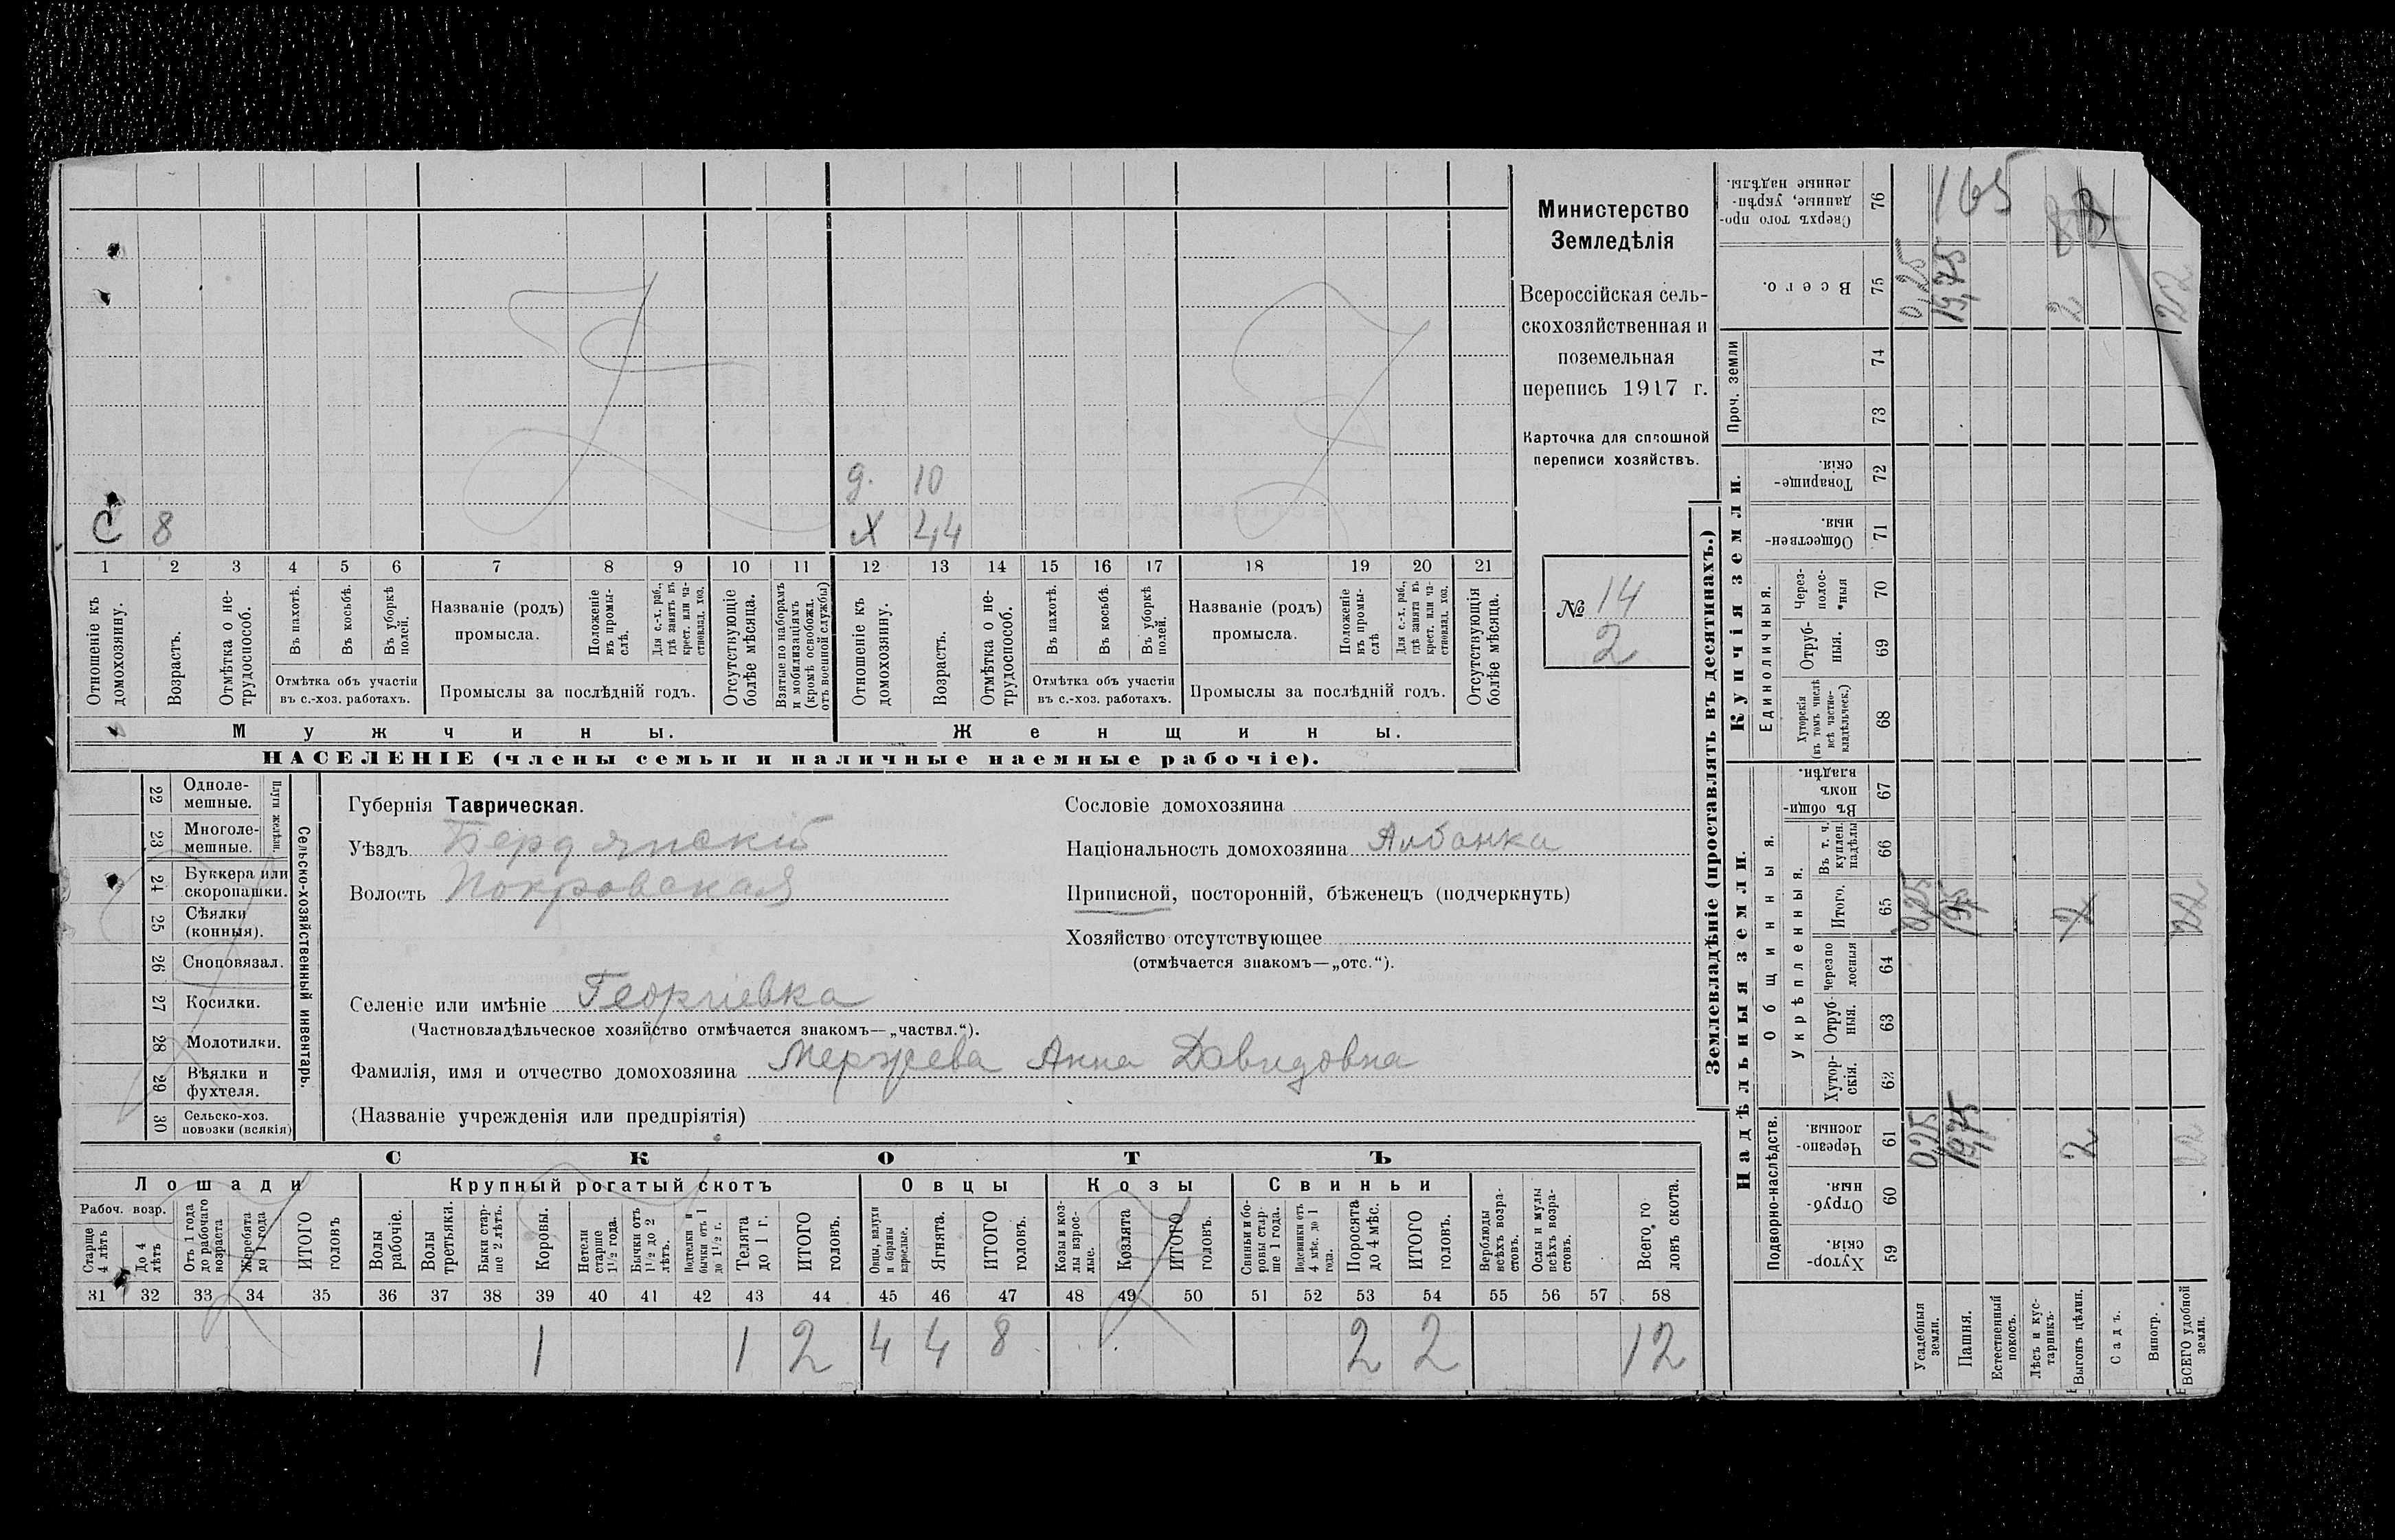 Министерство
Земледѣлія
Всероссійская сель-
скохозяйственная и
поземельная
перепись 1917 г.
Карточка для сплошной
переписи хозяйствъ.
№ 14
2
д. 10
С 8 Х 44
1 2 3 4 5 6 7 8 9 10 11 12 13 14 15 16 17 18 19 20 21
Отношеніе къ домохозяину.
Возрастъ.
Отмѣтка о не-трудоспособ.
Въ пахотѣ.
Въ косьбѣ.
Въ уборкѣ полей.
Отмѣтка объ участіи
въ с.-хоз. работахъ.
Названіе (родъ)
промысла.
Положеніе въ промы-слѣ.
Для с.-х. раб., гдѣ занятъ въ крест. или ча-стновлад. хоз.
Промыслы за послѣдній годъ.
Отсутствующіе болѣе мѣсяца.
Взятые по наборамъ и мобилизаціямъ (кромѣ освобожд. отъ военной службы)
Отношеніе къ домохозяину.
Возрастъ.
Отмѣтка о не-трудоспособ.
Въ пахотѣ.
Въ косьбѣ.
Въ уборкѣ полей.
Отмѣтка объ участіи
въ с.-хоз. работахъ.
Названіе (родъ)
промысла.
Положеніе въ промы-слѣ
Для с.-х. раб., гдѣ занята въ крест. или ча-стновлад. хоз.
Промыслы за послѣдній годъ.
Отсутствующія болѣе мѣсяца.
Мужчины. Женщины.
НАСЕЛЕНІЕ (члены семьи и наличные наемные рабочіе).
22 Одноле-мешные.
23 Многоле-мешные.
Плуги желѣзн.
24 Буккера или скоропашки.
25 Сѣялки (конныя).
26 Сноповязал.
27 Косилки.
28 Молотилки.
29 Вѣялки и фухтеля.
30 Сельско-хоз. повозки (всякія)
Сельско-хозяйственный инвентарь.
Губернія Таврическая.
Уѣздъ Бердянскій
Волость Покровская
Селеніе или имѣніе Георгіевка
(Частновладѣльческое хозяйство отмѣчается знакомъ—„частвл.“).
Фамилія, имя и отчество домохозяина Анна Давидовна
(Названіе учрежденія или предпріятія)
Сословіе домохозяина
Національность домохозяина Албанка
Приписной, посторонній, бѣженецъ (подчеркнуть)
Хозяйство отсутствующее
(отмѣчается знакомъ—„отс.“).
СКОТЪ
Лошади Крупный рогатый скотъ Овцы Козы Свиньи
Рабоч. возр.
Старше 4 лѣтъ
До 4 лѣтъ
Отъ 1 года до рабочаго возраста
Жеребята до 1 года
ИТОГО головъ
Волы рабочіе.
Волы третьяки.
Быки стар-ше 2 лѣтъ.
Коровы.
Нетели старше 1½ года.
Бычки отъ 1½ до 2 лѣтъ.
Подтелки и бычки отъ 1 до 1½ г.
Телята до 1 г.
ИТОГО головъ.
Овцы, валухи и бараны взрослые.
Ягнята.
ИТОГО головъ.
Козы и коз-лы взрос-лые.
Козлята
ИТОГО головъ.
Свиньи и бо-ровы стар-ше 1 года.
Подсвинки отъ 4 мѣс. до 1 года.
Поросята до 4 мѣс.
ИТОГО головъ.
Верблюды всѣхъ возра-стовъ.
Ослы и мулы всѣхъ возра-стовъ.
Всего го-ловъ скота.
31 32 33 34 35 36 37 38 39 40 41 42 43 44 45 46 47 48 49 50 51 52 53 54 55 56 57 58
1 1 2 4 4 8 2 2 12
Землевладѣніе (проставлять въ десятинахъ.)
Надѣльныя земли. Купчія земли.
Подворно-наслѣдств.
Общинныя.
Укрѣпленныя.
Единоличныя.
Проч. земли
Хутор-скія. 59
Отруб-ныя. 60
Черезпо-лосныя. 61
Хутор-скія. 62
Отруб-ныя. 63
Черезпо-лосныя 64
Итого. 65
Въ т. ч. куплен. надѣлы 66
Въ общин-номъ владѣн. 67
Хуторскія (въ томъ числѣ всѣ частно-владѣльческ.) 68
Отруб-ныя. 69
Через-полос-ныя 70
Обществен-ныя. 71
Товарище-скія. 72
73
74
Всего. 75
Сверхъ того про-данные, укрѣп-ленные надѣлы. 76
Усадебныя земли. 0,25 0,25 0,25
Пашня. 19,75 19,75 165
Естественный покосъ.
Лѣсъ и кус-тарникъ.
Выгонъ цѣлин. 2 2 2
Садъ.
Виногр.
ВСЕГО удобной земли. 22 22 22